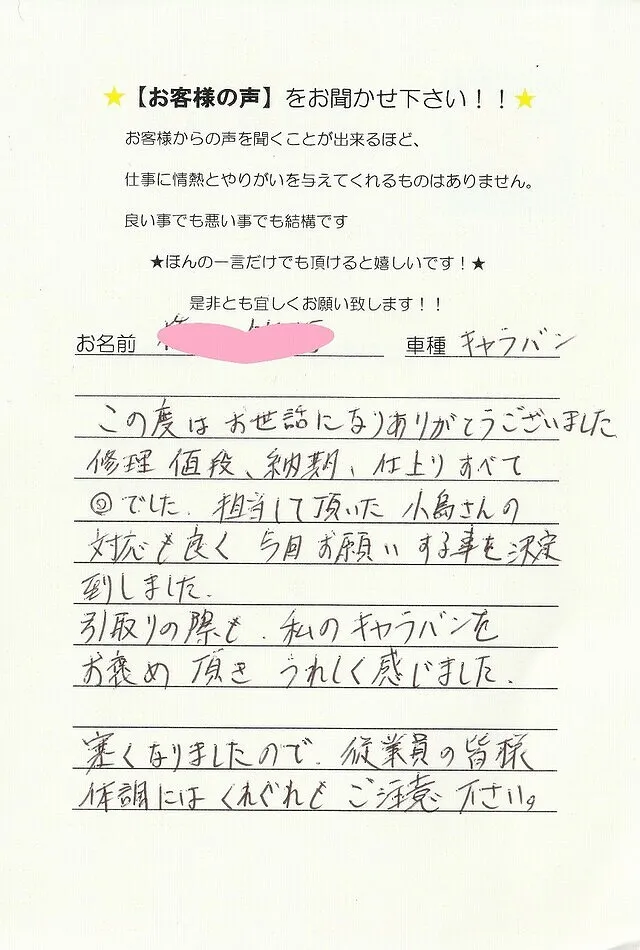 ★【お客様の声】をお聞かせ下さい！！★
お客様からの声を聞くことが出来るほど、
仕事に情熱とやりがいを与えてくれるものはありません。
良い事でも悪い事でも結構です
★ほんの一言だけでも頂けると嬉しいです！★
是非とも宜しくお願い致します！！
お名前 車種 キャラバン
この度は お世話になりありがとうございました
修理 値段、納期、仕上り すべて
◎でした. 担当して頂いた 小島さんの
対応も良く 今回 お願い する事を 決定
致しました.
引取りの際も. 私の キャラバンを
お褒め 頂き うれしく 感じました.
寒くなりましたので. 従業員の 皆様
体調には くれぐれも ご注意 下さい。